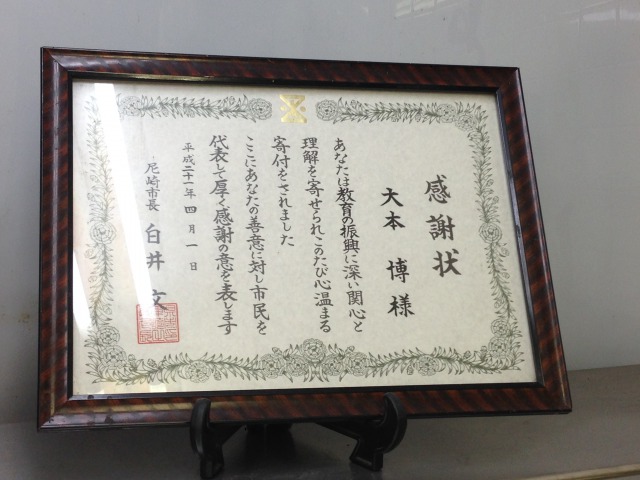 感謝状
大本 博様
あなたは教育の振興に深い関心と
理解を寄せられこのたび心温まる
寄付をされました
ここにあなたの善意に対し市民を
代表して厚く感謝の意を表します
平成二十一年四月一日
尼崎市長 白井 文